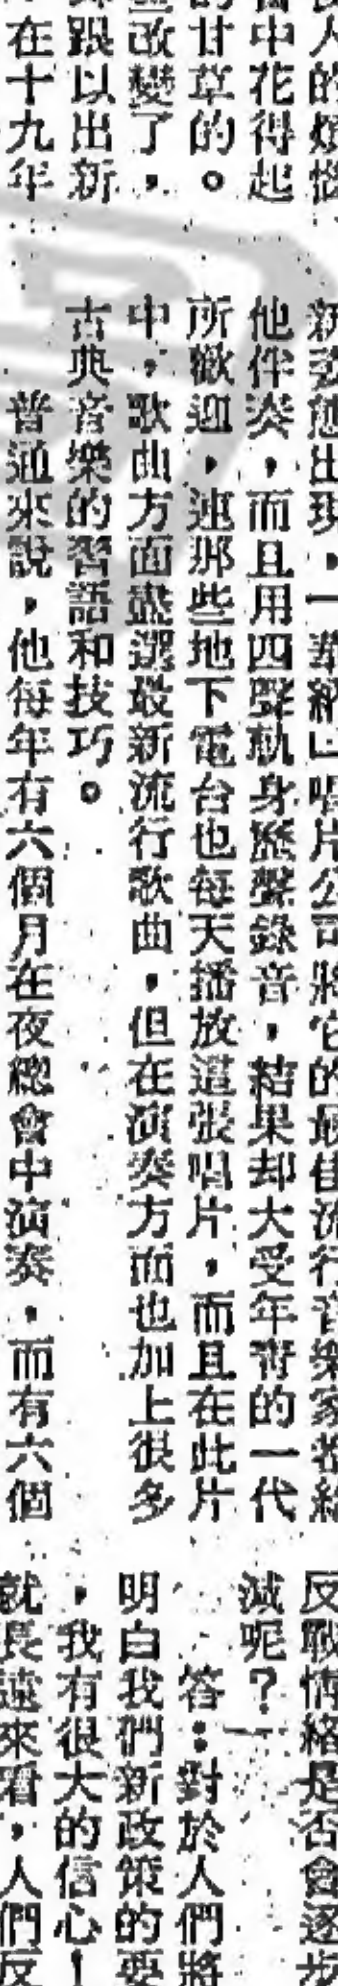 人的煩惱
中花得起
甘草的。
改變了，
跟以出新
在十九年
新姿態出現，「華納」唱片公司將它的最佳流行音樂家都給
他伴奏，而且用四聲軌身歷聲錄音，結果却大受年靑的一代
所歡迎，連那些地下電台也每天播放這張唱片，而且在此片
中，歌曲方面盡選最新流行歌曲，但在演奏方面也加上很多
古典音樂的習語和技巧。
普通來說，他每年有六個月在夜總會中演奏，而有六個
反戰情格是否會逐步
減呢？
答：對於人們將
明白我們新政策的要
，我有很大的信心！
就長遠來看，人們反